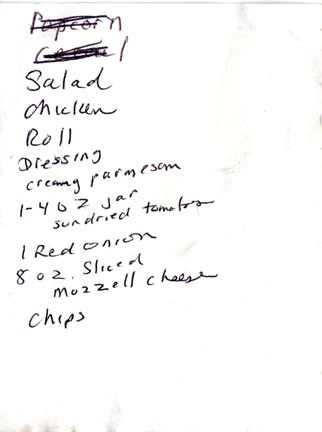 Popcorn
Cereal
Salad
chicken
Roll
Dressing
creamy parmesan
1-4 oz jar
sundried tomatoes
1 Red onion
8 oz. Sliced
mozzell cheese
chips